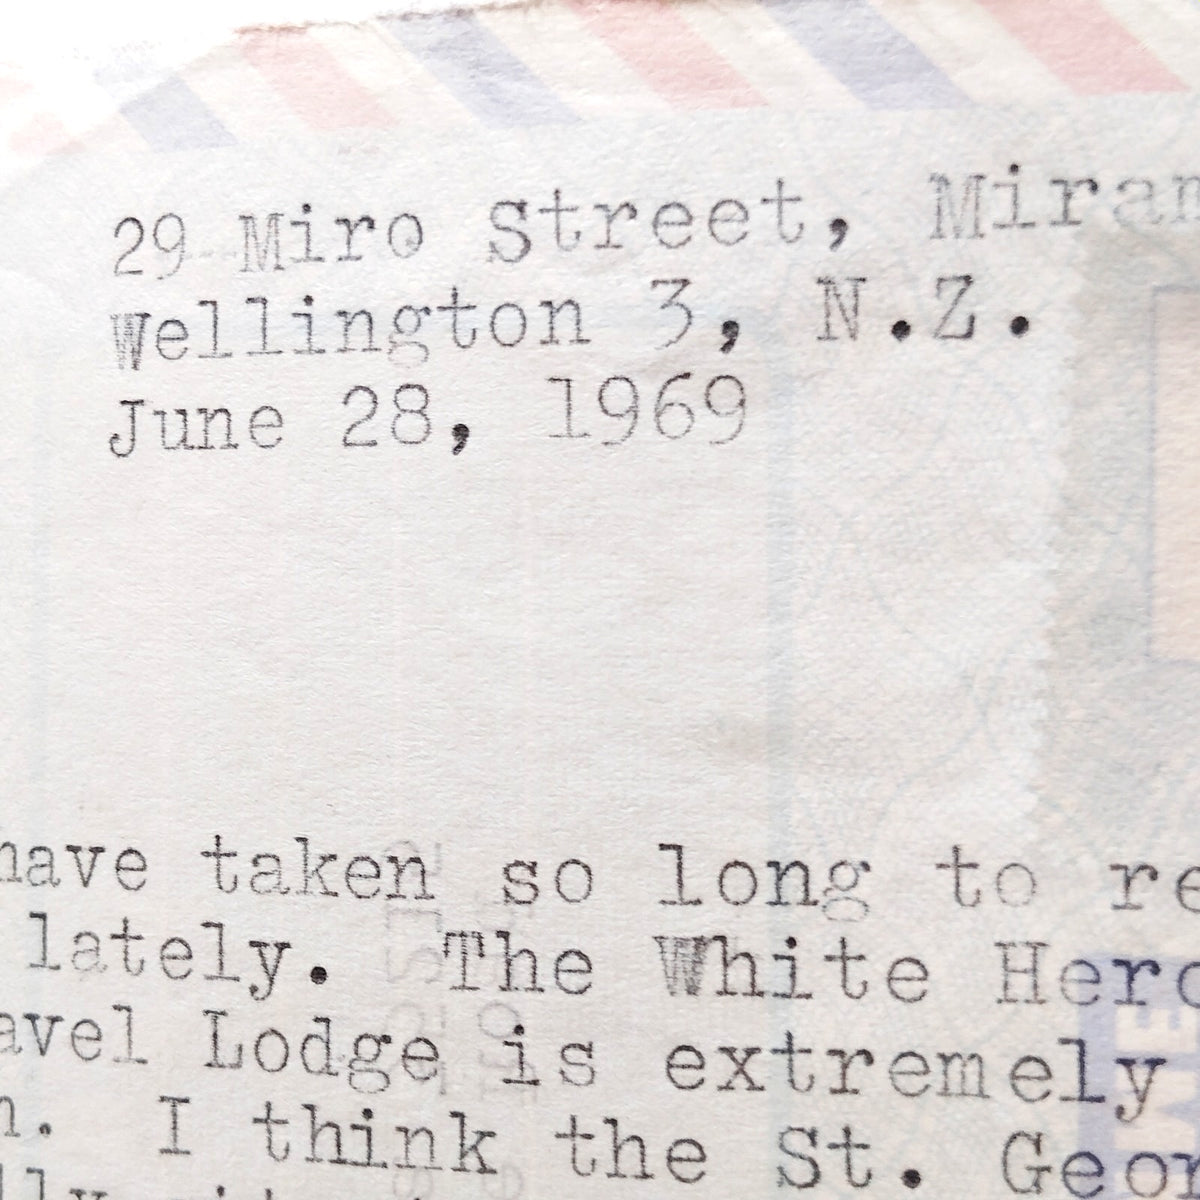 29 Miro Street, Miran
Wellington 3, N.Z.
June 28, 1969
have taken so long to re
lately. The White Hero
avel Lodge is extremely
n. I think the St. Geor